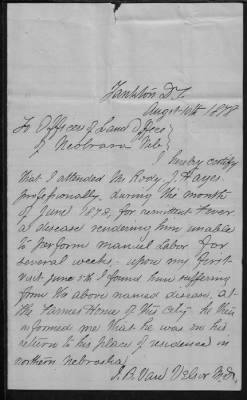 Yankton D.T.
Augst 10th 1878
To Officers of Land Office
of Neobrara Neb
I hereby certify
that I attended Mr Rody J. Hayes
professionally, during the month
of June 1878, for remittent Fever
a disease rendering him unable
to perform manuel Labor for
several weeks. upon my first
visit June 5th I found him suffering
from the above named disease, at
the Farmers Home of this City. he then
informed me that he was on his
return to his place of residence in
northern Nebraska
J. B. Van Velsor M.D.